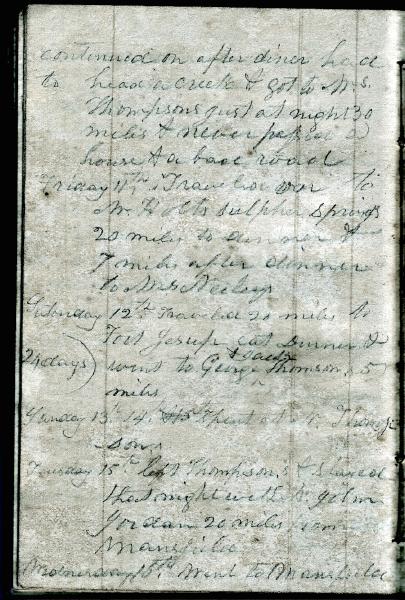 continued on after diner had
to head a creek & got to Mrs.
Thompsons just at night 30
miles & never passed a
house & a bad road
Friday 11th Traveled over to
Mr. Holts sulpher springs
20 miles to dinner &
7 miles after dinner
to Mrs Neeleys
Saturday 12th Traveled 20 miles to
Fort Jesup eat dinner &
24 days) went to George & Jack Thomson, s 5
miles
Sunday 13th 14. Spent at Mr. Thomp
son,s
Tuesday 15th left Thompson,s & Stayed
that night with Mr.
Jordan 20 miles from
Mansfield
Wednesday 16th Went to Mansfield